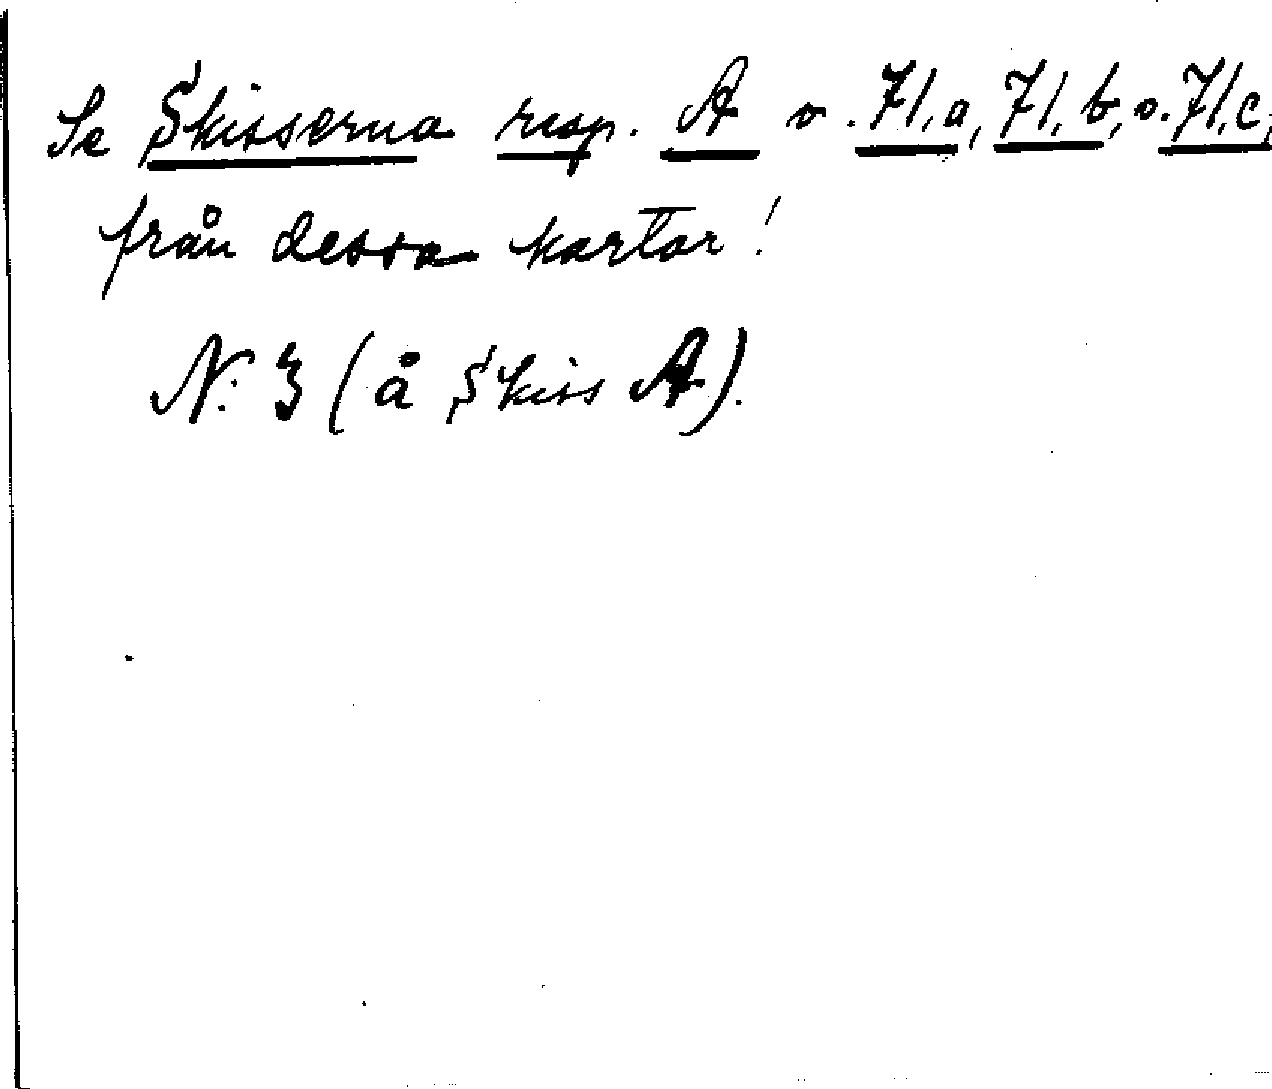 Se Skisserna resp. A o. 71.a, 71.b, o. 71.c,
från dessa kartor!
N: 3 (å Skiss A).